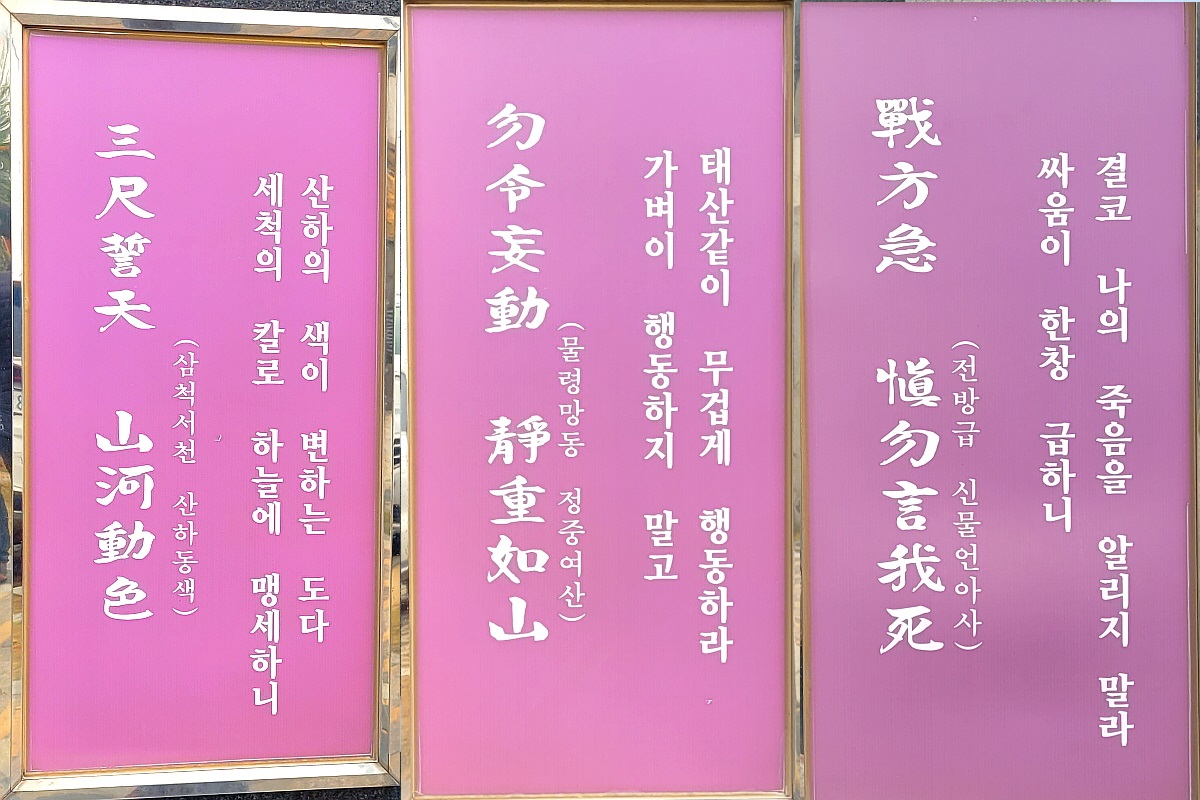 三尺誓天 山河動色
(삼척서천 산하동색)
세척의 칼로 하늘에 맹세하니
산하의 색이 변하는 도다
勿令妄動 靜重如山
(물령망동 정중여산)
가벼이 행동하지 말고
태산같이 무겁게 행동하라
戰方急 愼勿言我死
(전방급 신물언아사)
싸움이 한창 급하니
결코 나의 죽음을 알리지 말라